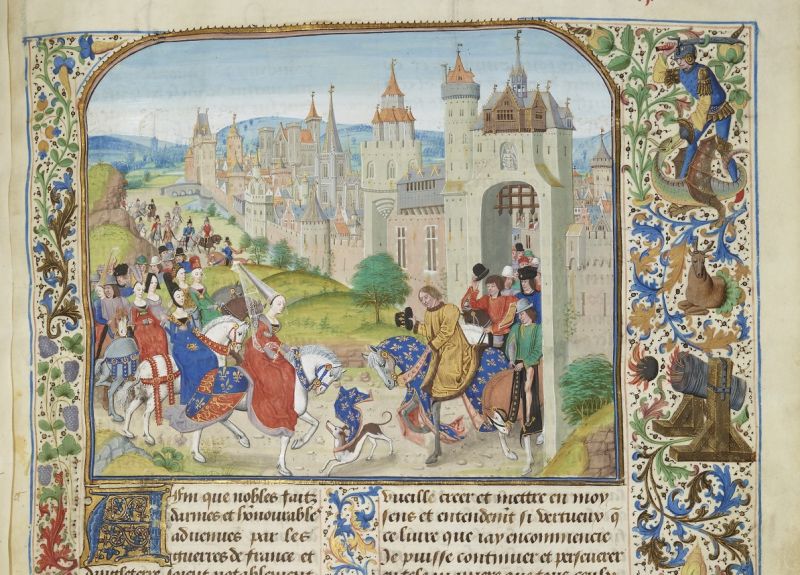 Afin que nobles faitz
darmes et honourable
aduenues par les
guerres de france et
vueille creer et mettre en moy
sens et entendemt si vertueux q̃
ce liure que iay encommencie
Je puisse continuer et perseuerer